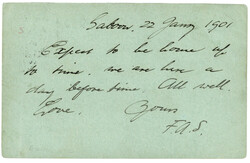 22 Jany 1901
Expect to be home up
to time. we are here a
day before time. All well.
Love. Yours
F.A.S.